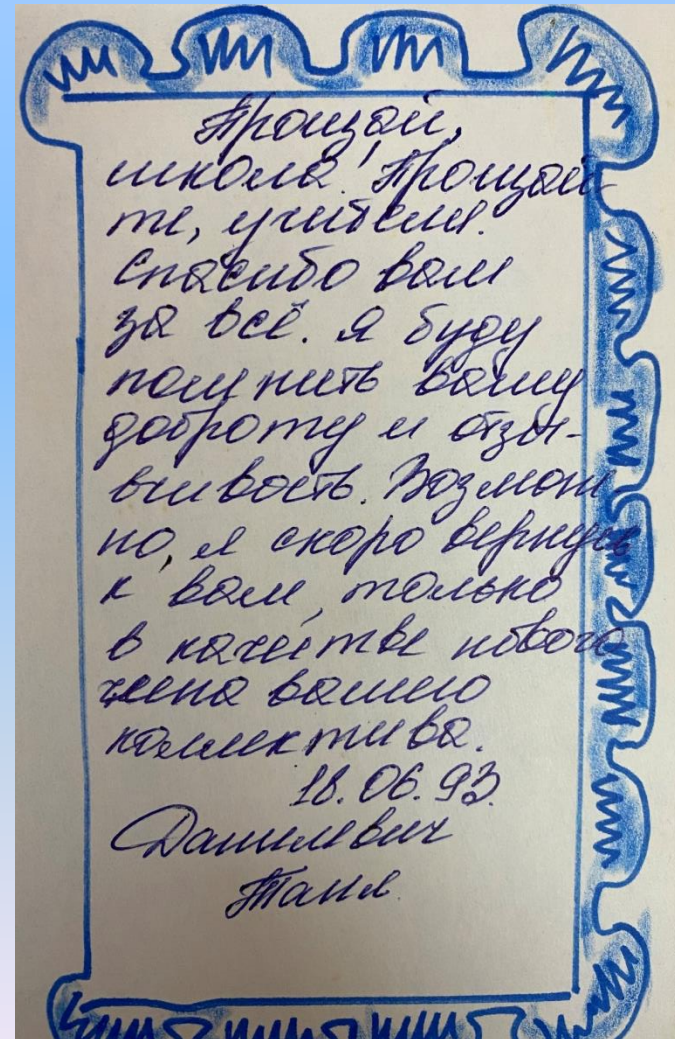 Прощай,
школа! Прощай-
те, учителя.
Спасибо вам
за всё. Я буду
помнить вашу
доброту и отзы-
вчивость. Возмож
но, я скоро вернусь
к вам, только
в качестве нового
члена вашего
коллектива.
18.06.93.
Данилевич
Таня.